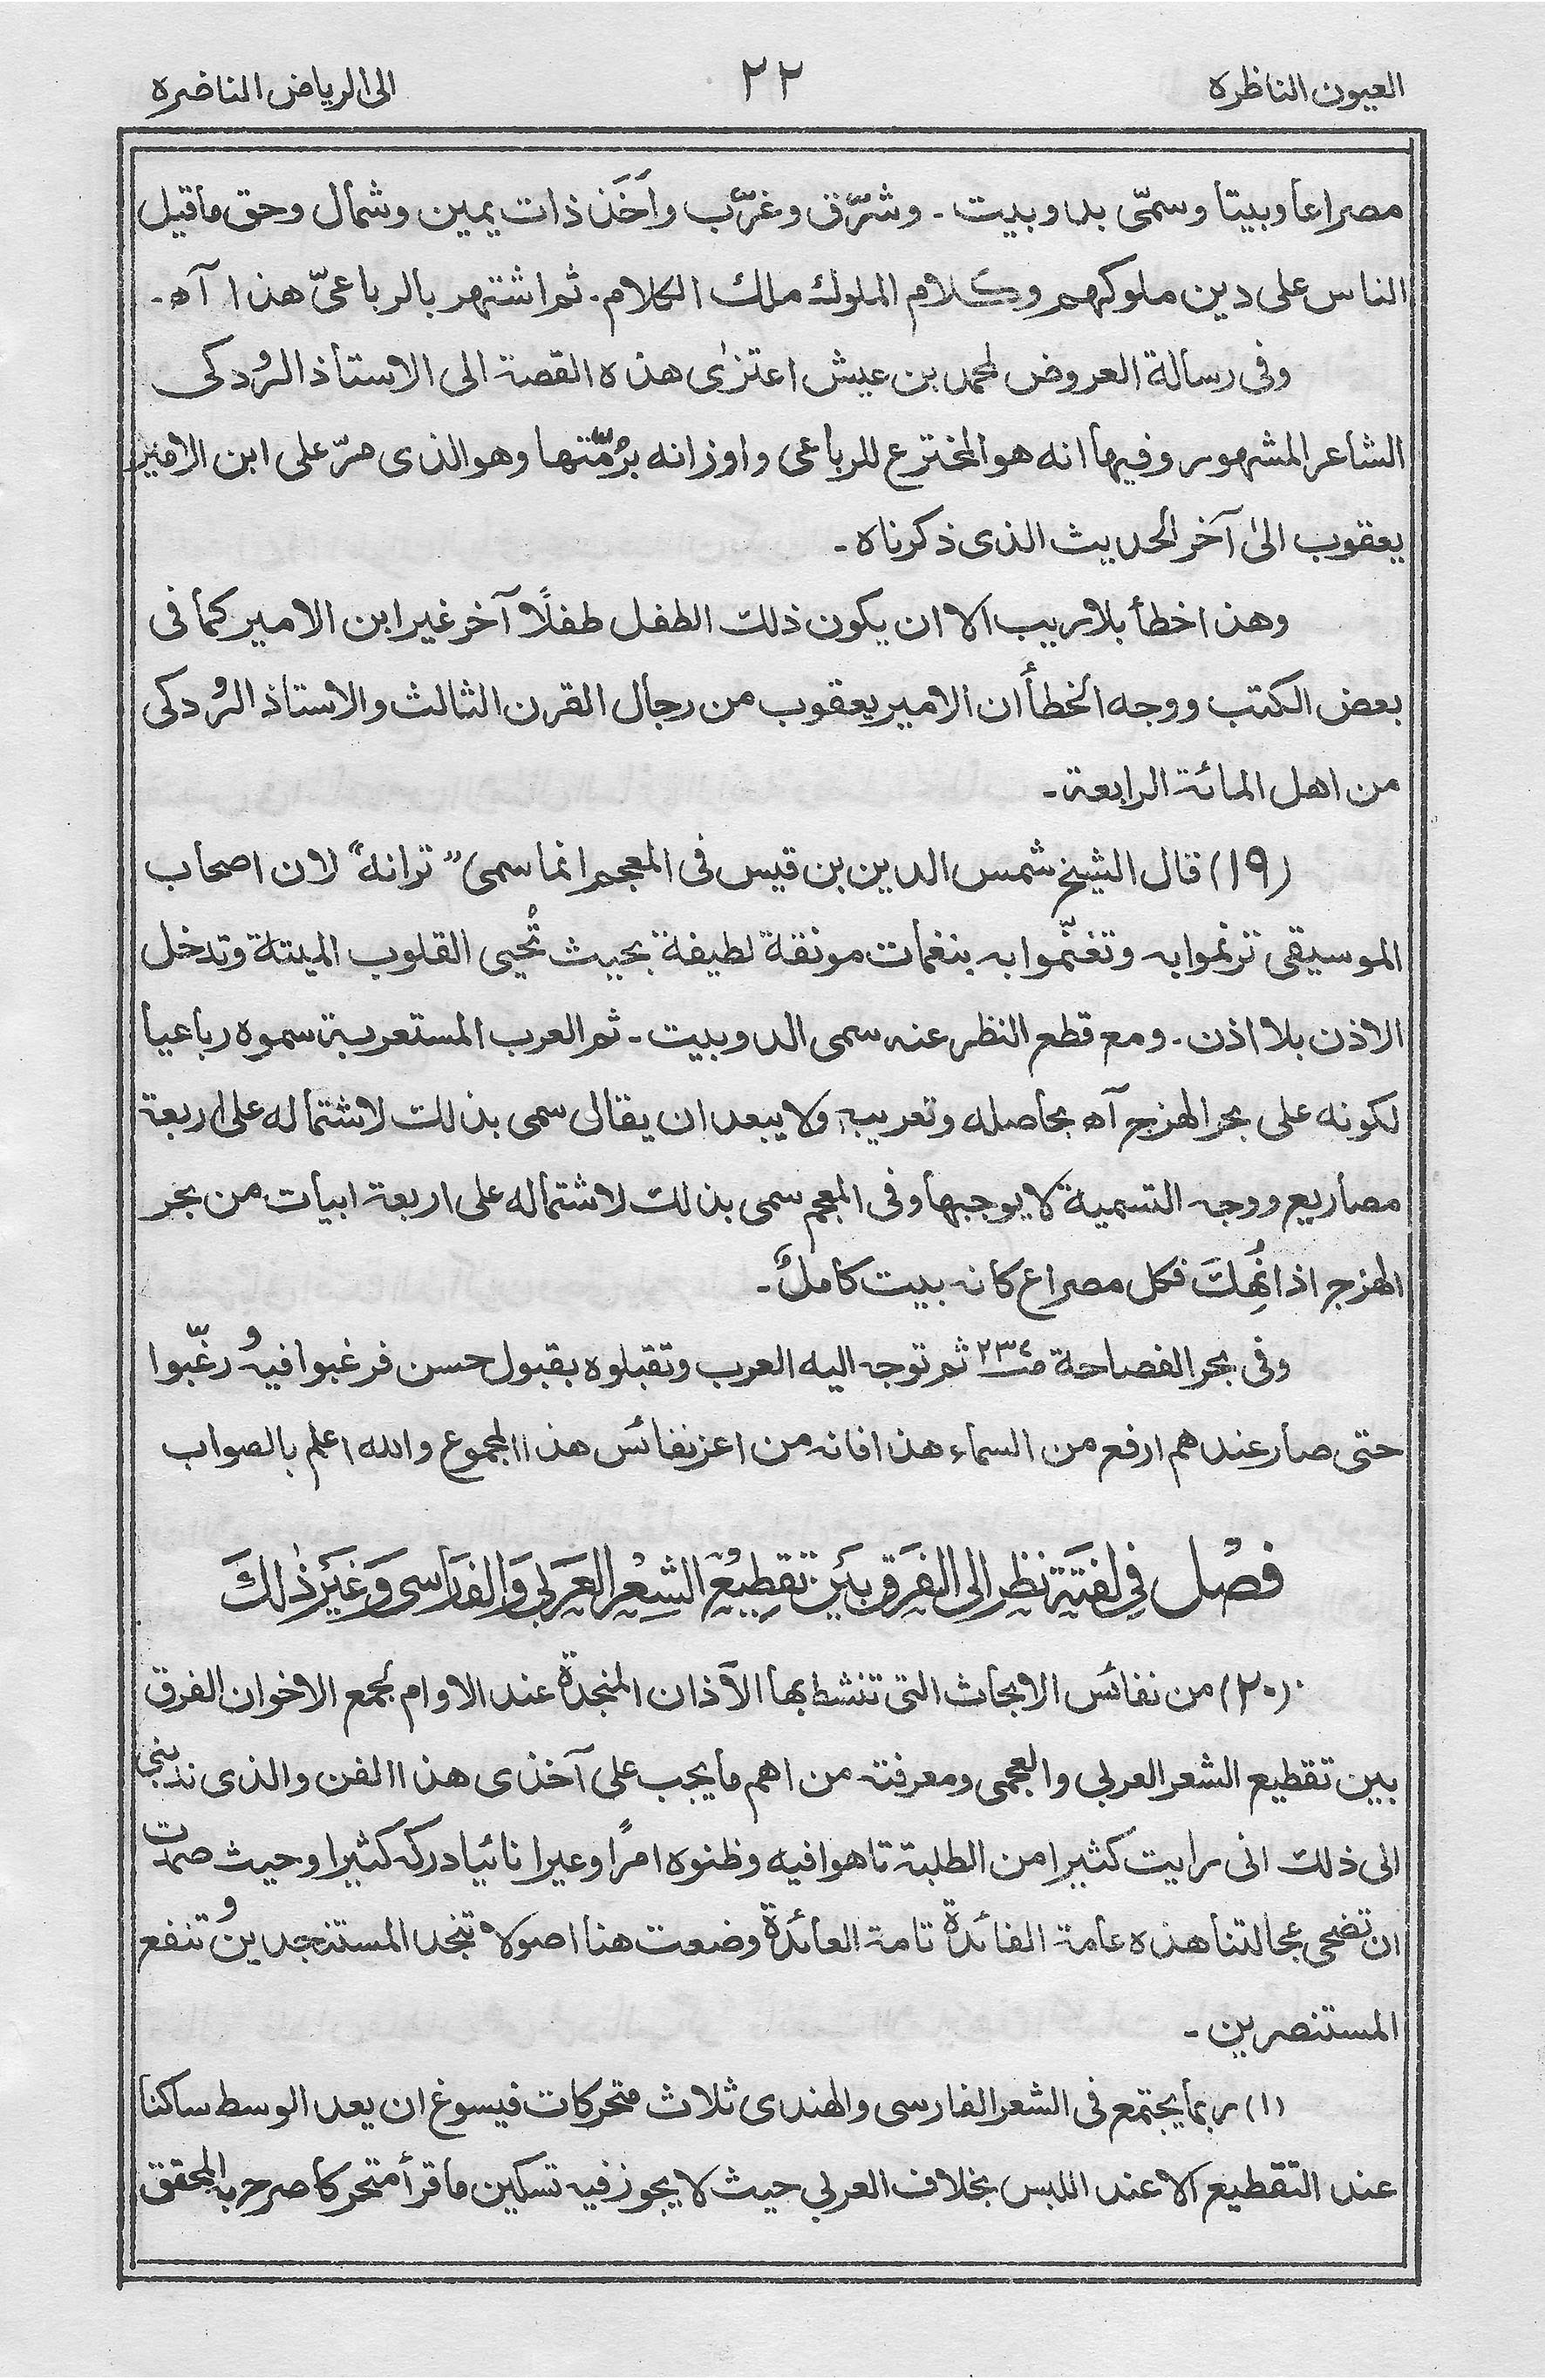 العيون الناظره
٢٢
الى الرياض الناضره
مصراعا وبيتا وسمّى بدوبيت ـ وشرّق وغرّب واَخَذ ذات يمين وشمال وحق ما قيل
الناس على دين ملوكهم وكلام الملوك ملك الكلام. ثم اشتهر بالرباعىّ هذا آه ـ
وفى رسالة العروض لمحمد بن عيش اعتزٰى هذه القصة الى الاستاذ الرُودكى
الشاعر المشهور وفيها انه هو المخترع للرباعى واوزانه برُمّتها وهو الذى مرّ على ابن الامير
يعقوب الىٰ آخر الحديث الذى ذكرناه ـ
وهذا خطأ بلا ريب الا ان يكون ذلك الطفل طفلًا آخر غير ابن الامير كما فى
بعض الكتب ووجه الخطأ أن الامير يعقوب من رجال القرن الثالث والاستاذ الرُودكى
من اهل المائة الرابعة ـ
(١٩) قال الشيخ شمس الدين بن قيس فى المعجم انما سمى ”ترانه“ لان اصحاب
الموسيقى ترنموا به وتغنّموا به بنغمات مونقة لطيفة بحيث تُحيى القلوب الميتة وتدخل
الاذن بلا اذن ـ ومع قطع النظر عنه سمى الدوبيت ـ ثم العرب المستعربة سموه رباعيا
لكونه على بحر الهزج آه بحاصله وتعريبه ولا يبعد ان يقال سمى بذلك لاشتماله على اربعة
مصاريع ووجه التسمية لا يوجبها وفى المعجم سمى بذلك لاشتماله على اربعة ابيات من بحر
الهزج اذا نُهِكَ فكل مصراع كانه بيت كاملٌ ـ
وفى بحر الفصاحة ص٢٣٤ ثم توجه اليه العرب وتقبلوه بقبول حسن فرغبوا فيه ورغّبوا
حتى صار عندهم ارفع من السماء هذا فانه من اعز نفائس هذا المجموع والله اعلم بالصواب
فصْل فِى لفتَةِ نظرِ الى الفَرقِ بيَن تقطِيعِ الشِعْرِ العَرَبى وَالفارْسى وَغيَرِ ذٰلكَ
(٢٠) من نفائس الابحاث التى تنشط بها الآذان المنجدة عند الاوام لجمع الاخوان الفرق
بين تقطيع الشعر العربى والعجمى ومعرفته من اهم ما يجب على آخذى هذا الفن والذى ندبنى
الى ذلك انى رايت كثيرا من الطلبة تاهوا فيه وظنوه امرًا وعيرا نائيا دركه كثيرا وحيث صمدت
ان تضحى عجالتنا هذه عامة الفائدة تامة العائدة وضعت هنا اصولا تنجد المستنجدين وتنفع
المستنصرين ـ
(١) ربما يجتمع فى الشعر الفارسى والهندى ثلاث متحركات فيسوغ ان يعد الوسط ساكنا
عند التقطيع الا عند اللبس بخلاف العربى حيث لا يجوز فيه تسكين ما قرأ متحركا صرح به المحقق